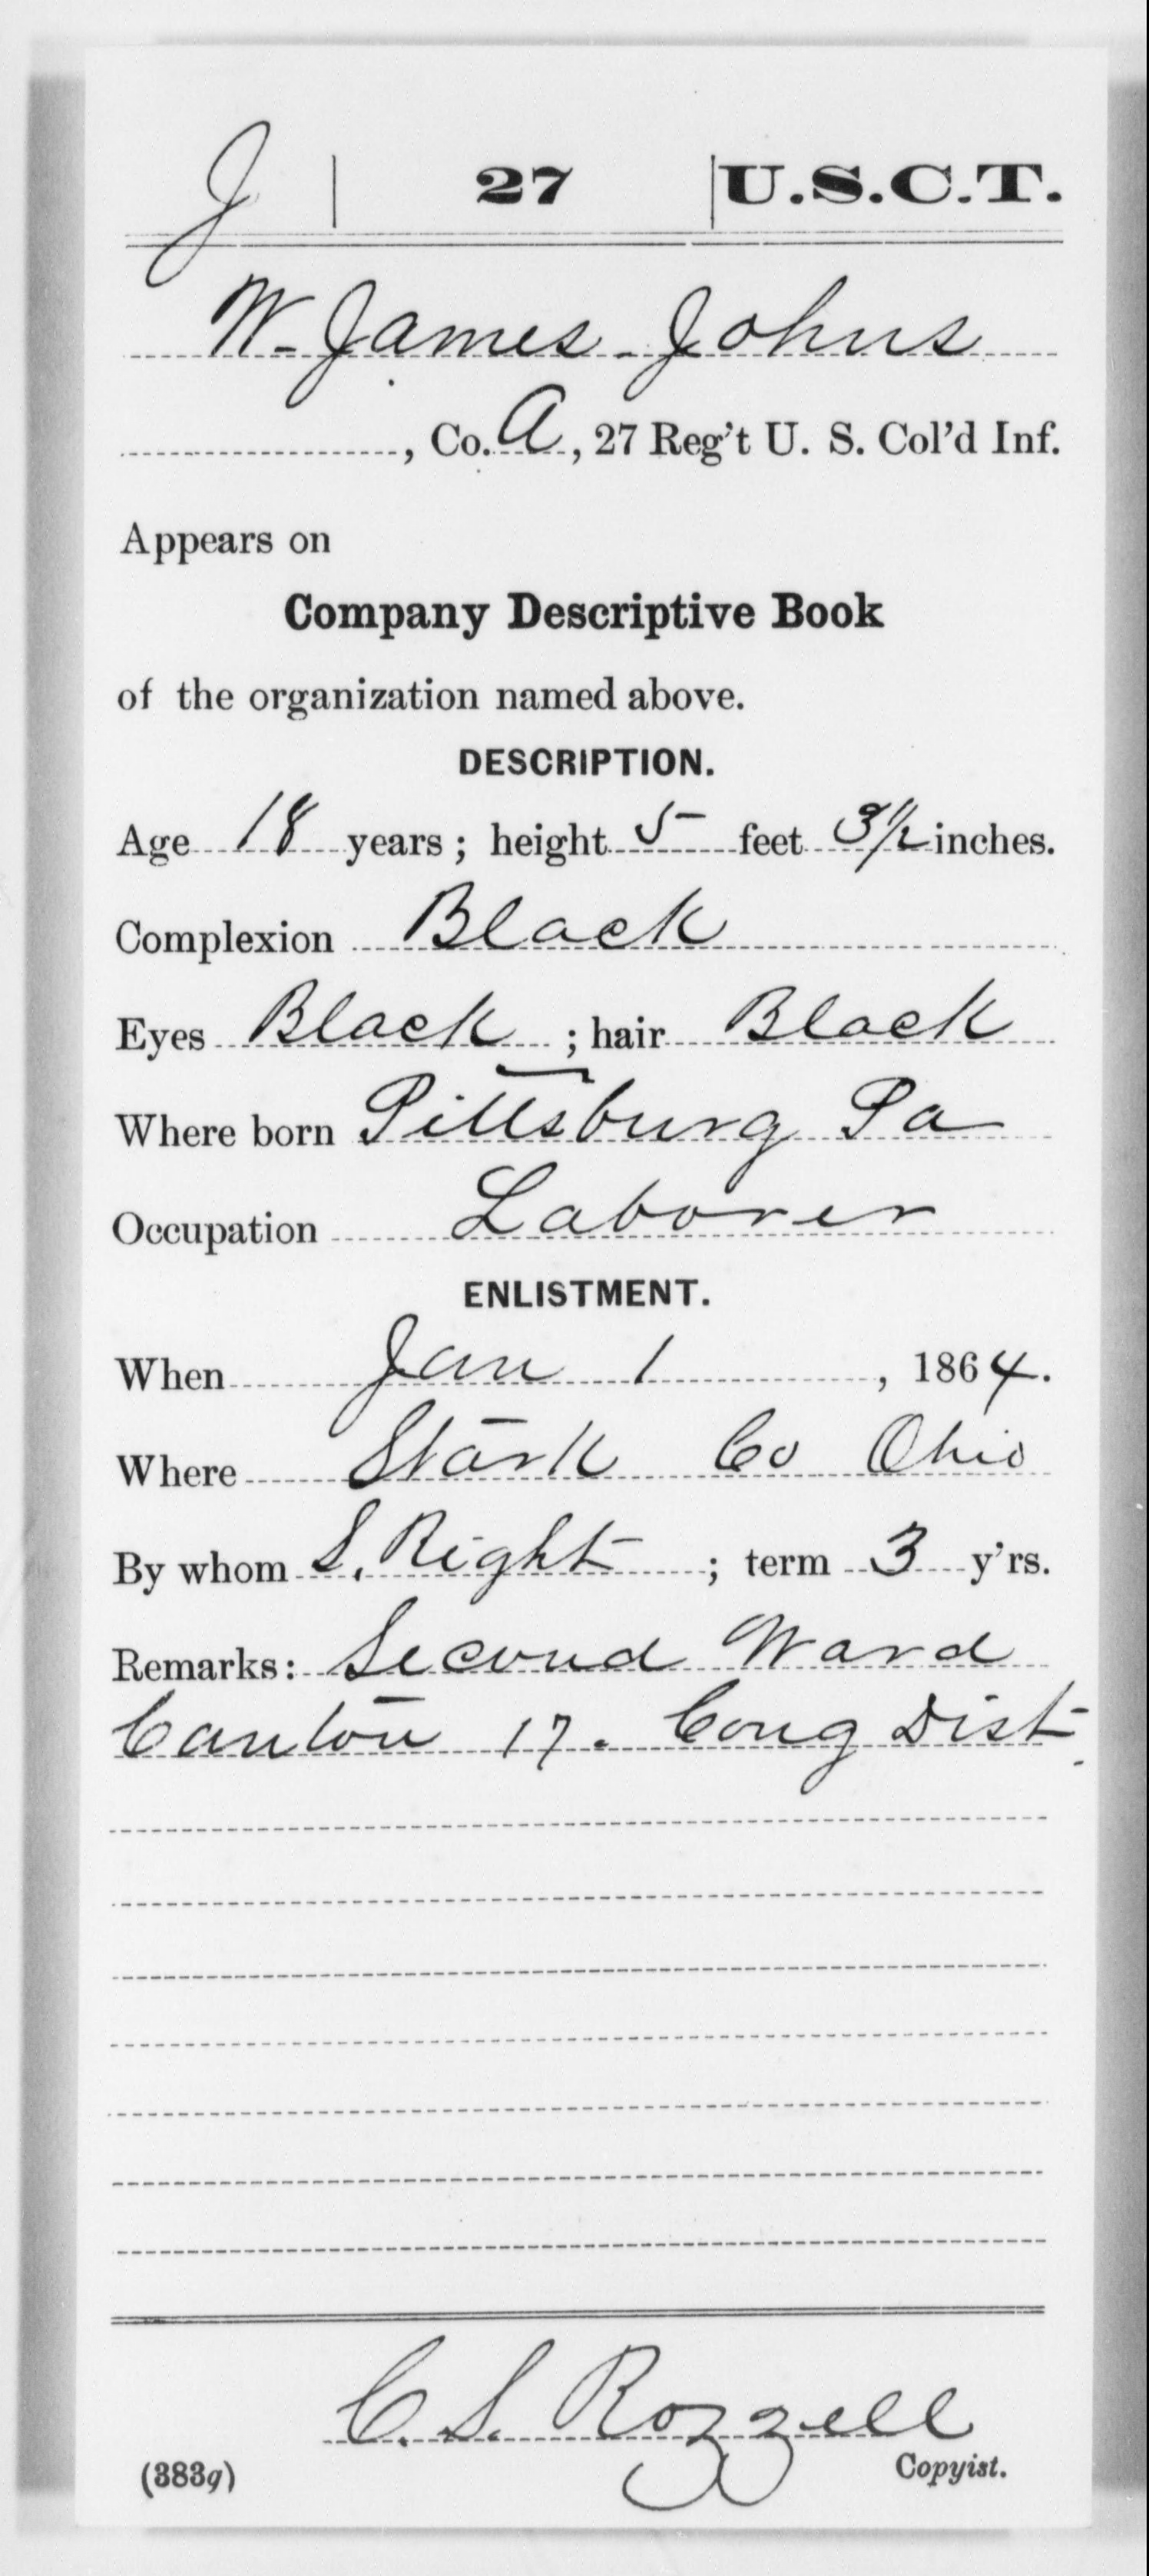 J | 27 | U.S.C.T.
W. James Johns
, Co. A, 27 Reg't U. S. Col'd Inf.
Appears on
Company Descriptive Book
of the organization named above.
DESCRIPTION.
Age 18 years; height 5 feet 3½ inches.
Complexion Black
Eyes Black; hair Black
Where born Pittsburg Pa
Occupation Laborer
ENLISTMENT.
When Jan 1, 1864.
Where Stark Co Ohio
By whom S. Right; term 3 y'rs.
Remarks: Second Ward
Canton 17. Cong Dist.
C. S. Rozzell
(383g) Copyist.